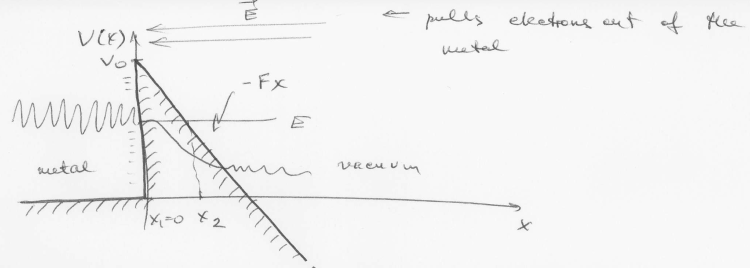 E
← pulls electrons out of the
metal
V(x)
V₀
-Fx
E
metal
vacuum
x₁=0 x₂
x